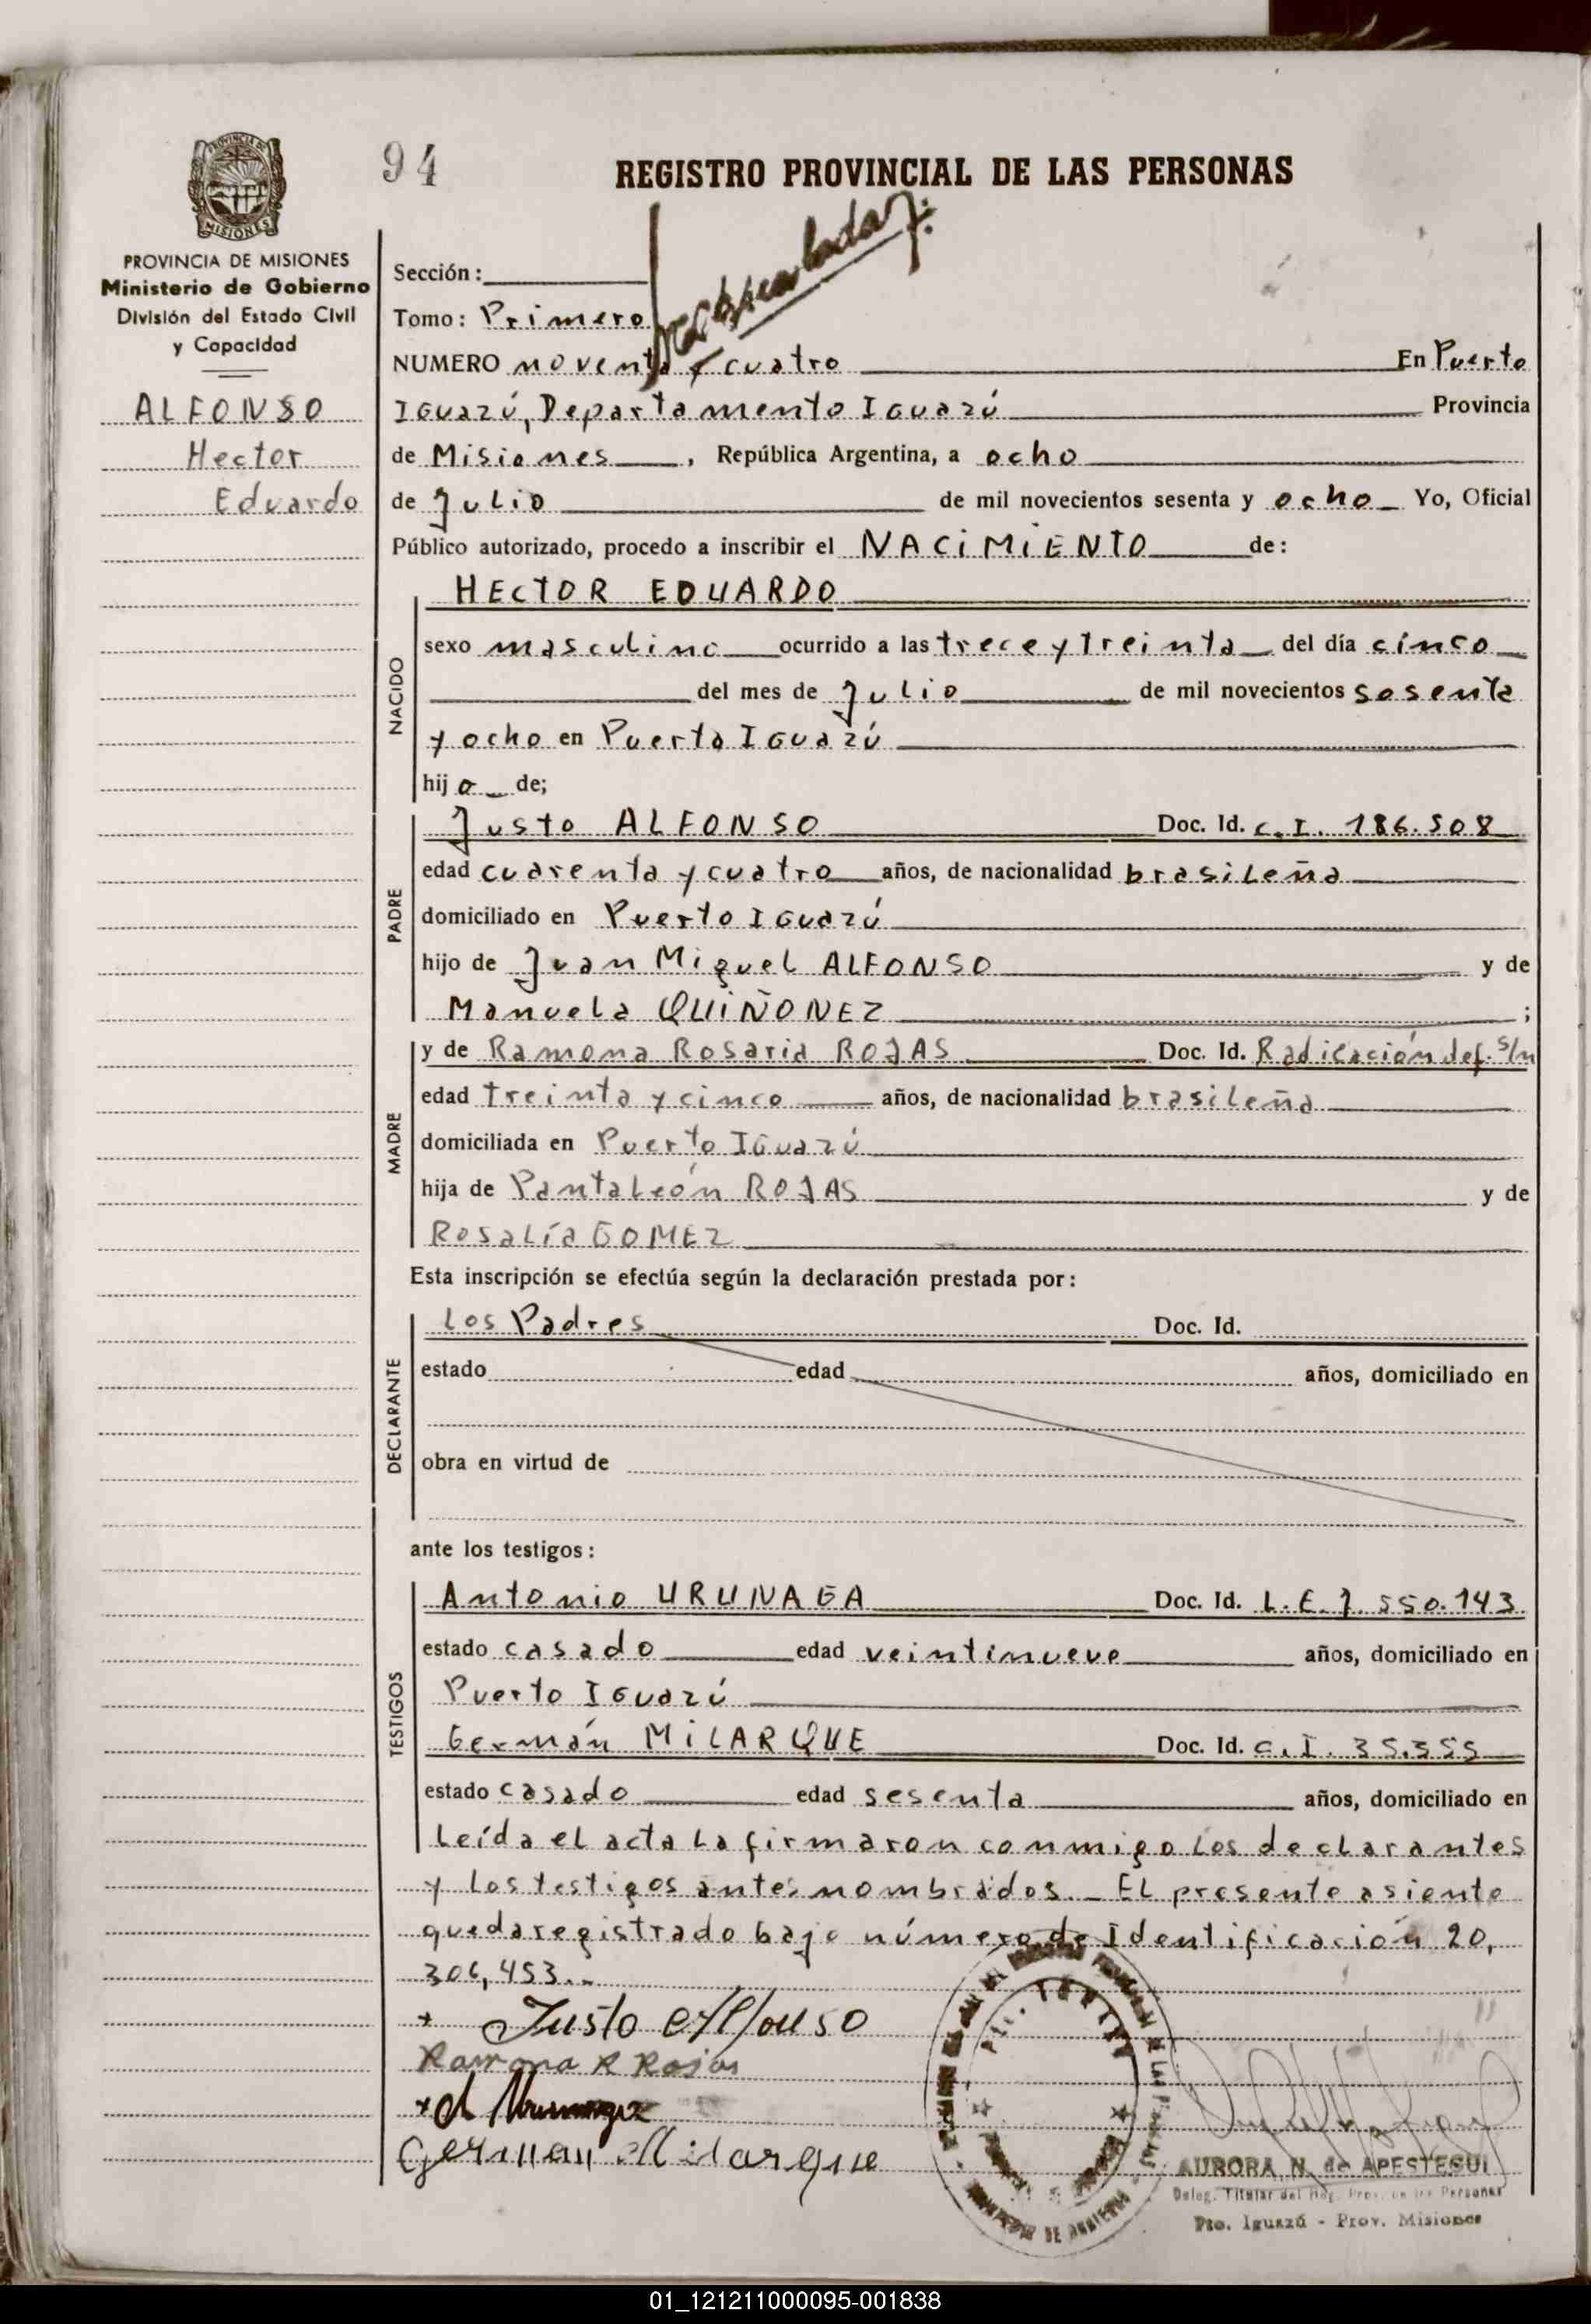 94
REGISTRO PROVINCIAL DE LAS PERSONAS
PROVINCIA DE MISIONES
Ministerio de Gobierno
División del Estado Civil
y Capacidad
ALFONSO
Hector
Eduardo
Sección:
Tomo: Primero
NUMERO noventa y cuatro En Puerto
Iguazú, Departamento Iguazú Provincia
de Misiones, República Argentina, a ocho
de Julio de mil novecientos sesenta y ocho Yo, Oficial
Público autorizado, procedo a inscribir el NACIMIENTO de:
HECTOR EDUARDO
NACIDO
sexo masculino ocurrido a las trece y treinta del día cinco
del mes de Julio de mil novecientos sesenta
y ocho en Puerto Iguazú
hijo de;
PADRE
Justo ALFONSO Doc. Id. C.I. 186.508
edad cuarenta y cuatro años, de nacionalidad brasileña
domiciliado en Puerto Iguazú
hijo de Juan Miguel ALFONSO y de
Manuela QUIÑONEZ ;
MADRE
y de Ramona Rosaria ROJAS Doc. Id. Radicación def. s/n
edad treinta y cinco años, de nacionalidad brasileña
domiciliada en Puerto Iguazú
hija de Pantaleón ROJAS y de
Rosalía GOMEZ
Esta inscripción se efectúa según la declaración prestada por:
DECLARANTE
Los Padres Doc. Id.
estado edad años, domiciliado en
obra en virtud de
ante los testigos:
TESTIGOS
Antonio URUNAGA Doc. Id. L.E. 7.550.143
estado casado edad veintinueve años, domiciliado en
Puerto Iguazú
Germán MILARQUE Doc. Id. C.I. 35.355
estado casado edad sesenta años, domiciliado en
Leída el acta la firmaron conmigo los declarantes
y los testigos antes nombrados. El presente asiento
queda registrado bajo número de Identificación 20,
306,453..
Justo Alfonso
Ramona R Rojas
German Milarque
AURORA N. de APESTEGUI
Deleg. Titular del Reg. Prov. de las Personas
Pto. Iguazú - Prov. Misiones
01_121211000095-001838